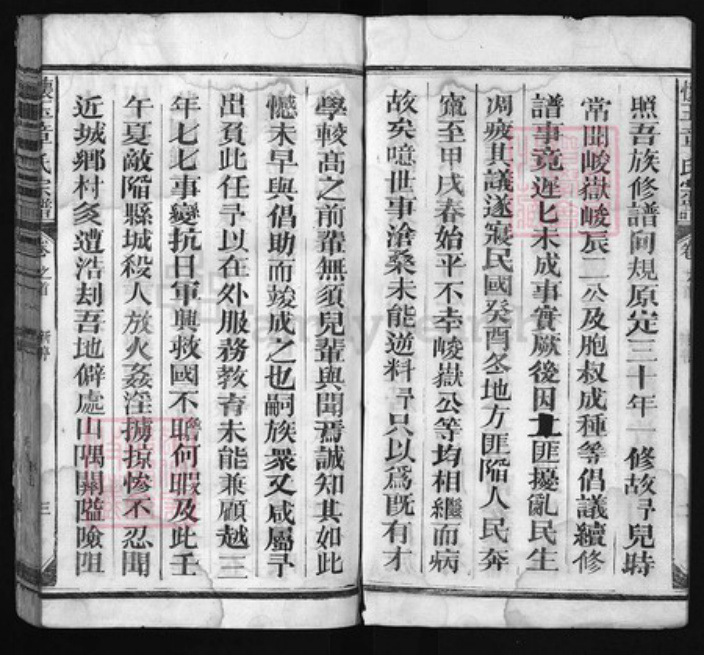 照吾族修譜向規原定三十年一修故予兒時
常聞峻嶽峻辰二公及胞叔成種等倡議續修
譜事竟遲匕未成事實厥後因匪擾亂民生
凋疲其議遂寢民國癸酉冬地方匪陷人民奔
竄至甲戌春始平不幸峻嶽公等均相繼而病
故矣噫世事滄桑未能逆料予只以爲旣有才
學較高之前輩無須兒輩與聞焉誠知其如此
憾未早與倡助而竣成之也嗣族衆又咸屬予
出負此任予以在外服務教育未能兼顧越三
年七七事變抗日軍興救國不瞻何暇及此壬
午夏敵陷縣城殺人放火姦淫擄掠慘不忍聞
近城鄉村多遭浩刦吾地僻處山隅關隘險阻
懷玉章氏宗譜
卷之首
三